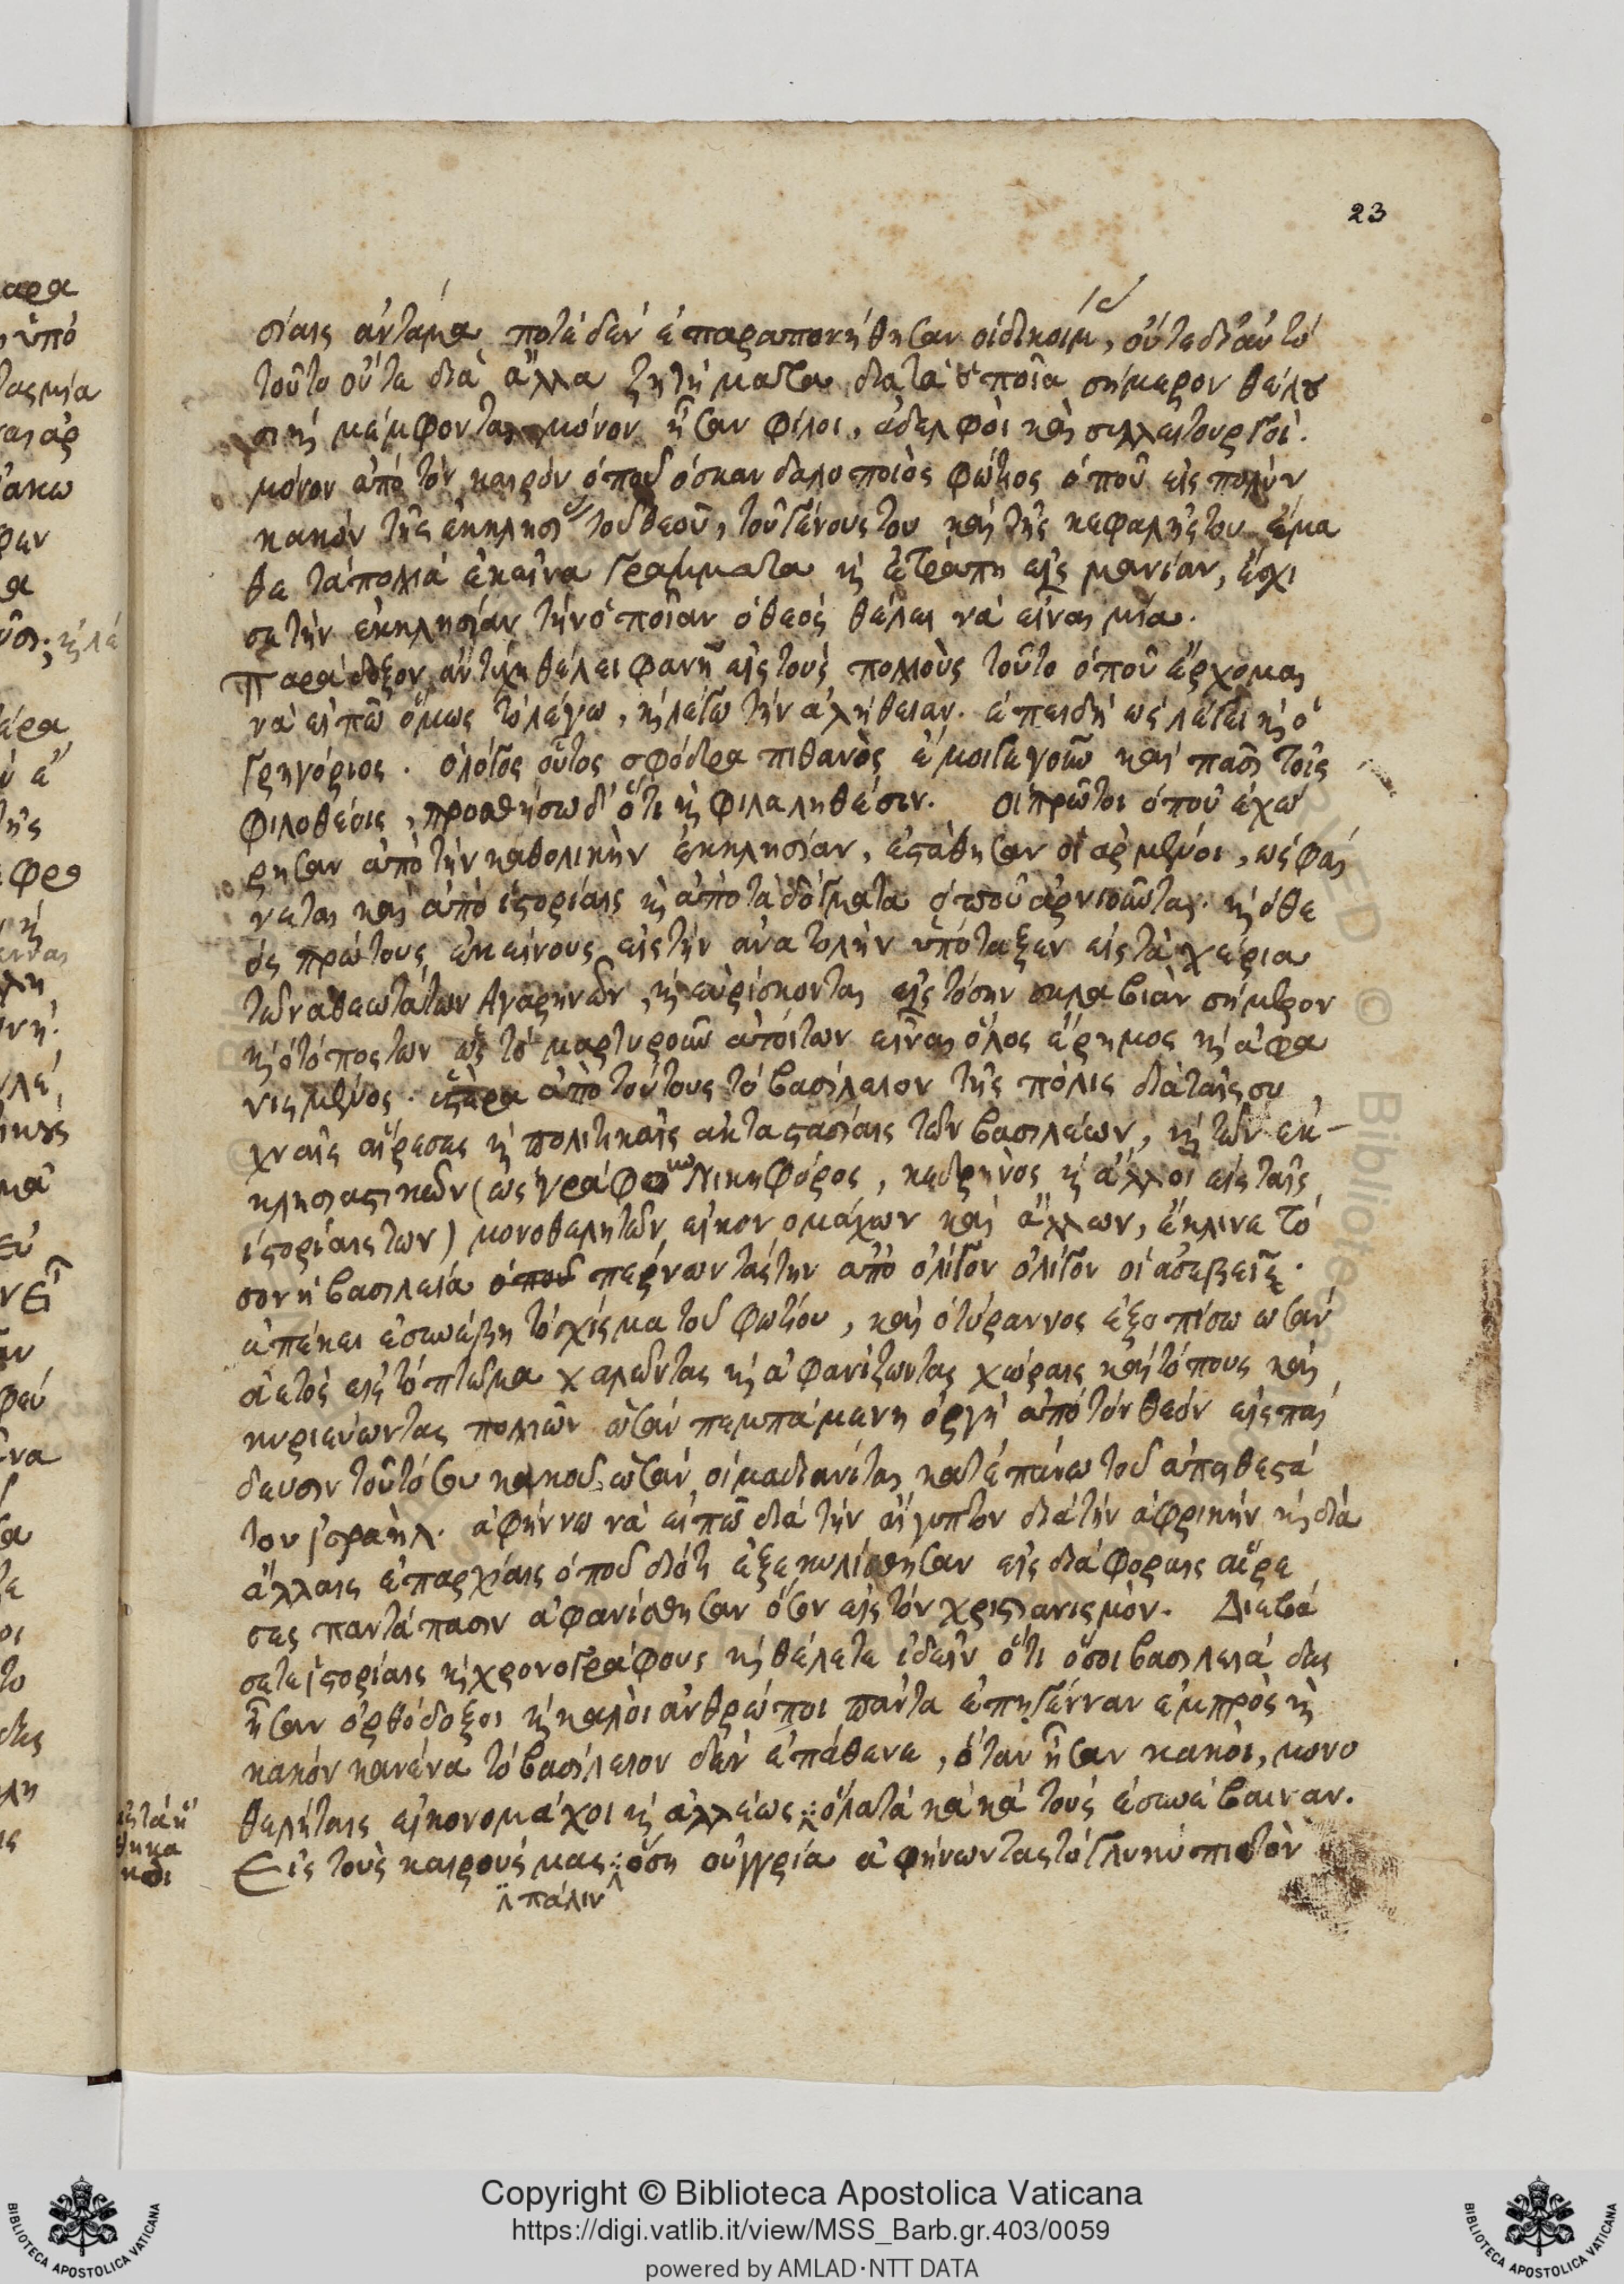 23
σίαις ἀντάμα ποτὲ δὲν ἐπαραπονήθησαν οἱ δικοί μ, οὔτε δι' αὐτὸ
τοῦτο οὔτε διὰ ἄλλα ζητήματα διὰ τὰ ὁποῖα σήμερον θέλου
μέμφονται μόνον ἦσαν φίλοι, ἀδελφοὶ καὶ συλλειτουργοί.
μόνον ἀπὸ τὸν καιρὸν ὁποῦ ὁ σκανδαλοποιὸς Φώτιος ὁποῦ εἰς πολὺν
κακὸν τῆς ἐκκλησί τοῦ θεοῦ, τοῦ γένους του καὶ τῆς κεφαλῆς του ἔμα
θε τὰ πολλὰ ἐκεῖνα γράμματα κὶ ἐτράπη εἰς μανίαν, ἔσχι
σε τὴν ἐκκλησίαν τὴν ὁποῖαν ὁ θεὸς θέλει νὰ εἶναι μία.
Παράδοξον ἂν τύχη θέλει φανῆ εἰς τοὺς πολλοὺς τοῦτο ὁποῦ ἔρχομαι
νὰ εἰπῶ ὅμως τὸ λέγω, κὶ λέγω τὴν ἀλήθειαν. ἐπειδὴ ὡς λέγει κὶ ὁ
Γρηγόριος. ὁ λόγος οὗτος σφόδρα πιθανὸς ἐμοὶ γεγοῦν καὶ πᾶσι τοῖς
φιλοθέοις, προσθήσω δ' ὅτι κὶ φιλαληθέσιν. οἱ πρῶτοι ὁποῦ ἐχώ
ρησαν ἀπὸ τὴν καθολικὴν ἐκκλησίαν, ἐστάθησαν οἱ ἀρμένοι, ὡς φαί
νεται καὶ ἀπὸ ἱστορίαις κὶ ἀπὸ τὰ δόγματα ὁποῦ ἀρνιοῦνται. κὶ ὁ θε
ὸς πρώτους ἐκείνους εἰς τὴν ἀνατολὴν ὑπόταξεν εἰς τὰ χέρια
τῶν ἀθεωτάτων Ἀγαρηνῶν, κὶ εὑρίσκονται εἰς τόσην σκλαβιὰν σήμερον
κὶ ὁ τόπος των ὡς τὸ μαρτυροῦν ἀπόιτων εἶναι ὅλος ἔρημος κὶ ἀφα
νισμένος. ὕστερα ἀπὸ τούτους τὸ βασίλειον τῆς πόλις διὰ ταῖς συ
χναῖς αἵρεσες κὶ πολιτικαῖς ἀκταστασίαις τῶν βασιλέων, κὶ τῶν ἐκ-
κλησιαστικῶν (ὡς γράφου Νικηφόρος, κεδρηνὸς κὶ ἄλλοι εἰς ταῖς
ἱστορίαις των) μονοθελητῶν εἰκονομάχων καὶ ἄλλων, ἔκλινε τό
σον ἡ βασιλεία ὁποῦ περνωντάς την ἀπὸ ὀλίγον ὀλίγον οἱ ἀσεβεῖς.
ἀπέκει ἐσυνέβη τὸ σχίσμα τοῦ Φωτίου, καὶ ὁ τύραννος ἐξοπίσω ὡσὰν
ἀετὸς εἰς τὸ πτῶμα χαλῶντας κὶ ἀφανίζωντας χώραις καὶ τόπους καὶ
κυριεύωντας πολλῶν ὡσὰν πεμπάμενη ὀργὴ ἀπὸ τὸν θεὸν εἰς παί
δευσιν τοῦ τόσου κακοῦ, ὡσὰν οἱ μαδιανίται κατεπάνω τοῦ ἀπειθεστά
του ἰσραήλ. ἀφήννω νὰ εἰπῶ διὰ τὴν αἴγυπτον διὰ τὴν ἀφρικὴν κὶ διὰ
ἄλλαις ἐπαρχίαις ὁποῦ διότι ἐξεκυλίσθησαν εἰς διάφοραις αἵρε
σες παντάπασιν ἀφανίσθησαν ὅσον εἰς τὸν χριστιανισμόν. Διαβά
σετε ἱστορίαις κὶ χρονογράφους κὶ θέλετε ἰδεῖν ὅτι ὅσοι βασιλειάδες
ἦσαν ὀρθόδοξοι κὶ καλοὶ ἀνθρώποι πάντα ἐπηγένναν ἐμπρὸς κὶ
κακὸν κανένα τὸ βασίλειον δὲν ἐπάθενε, ὅταν ἦσαν κακοὶ, μονο
θελήταις εἰκονομάχοι κὶ ἀλλέως ὅλα τὰ κακὰ τοὺς ἐσυνέβαιναν.
Εἰς τοὺς καιρούς μας ὅση οὐγγρία ἀφήνωντας τὸ γλυκύπιοτον
πάλιν